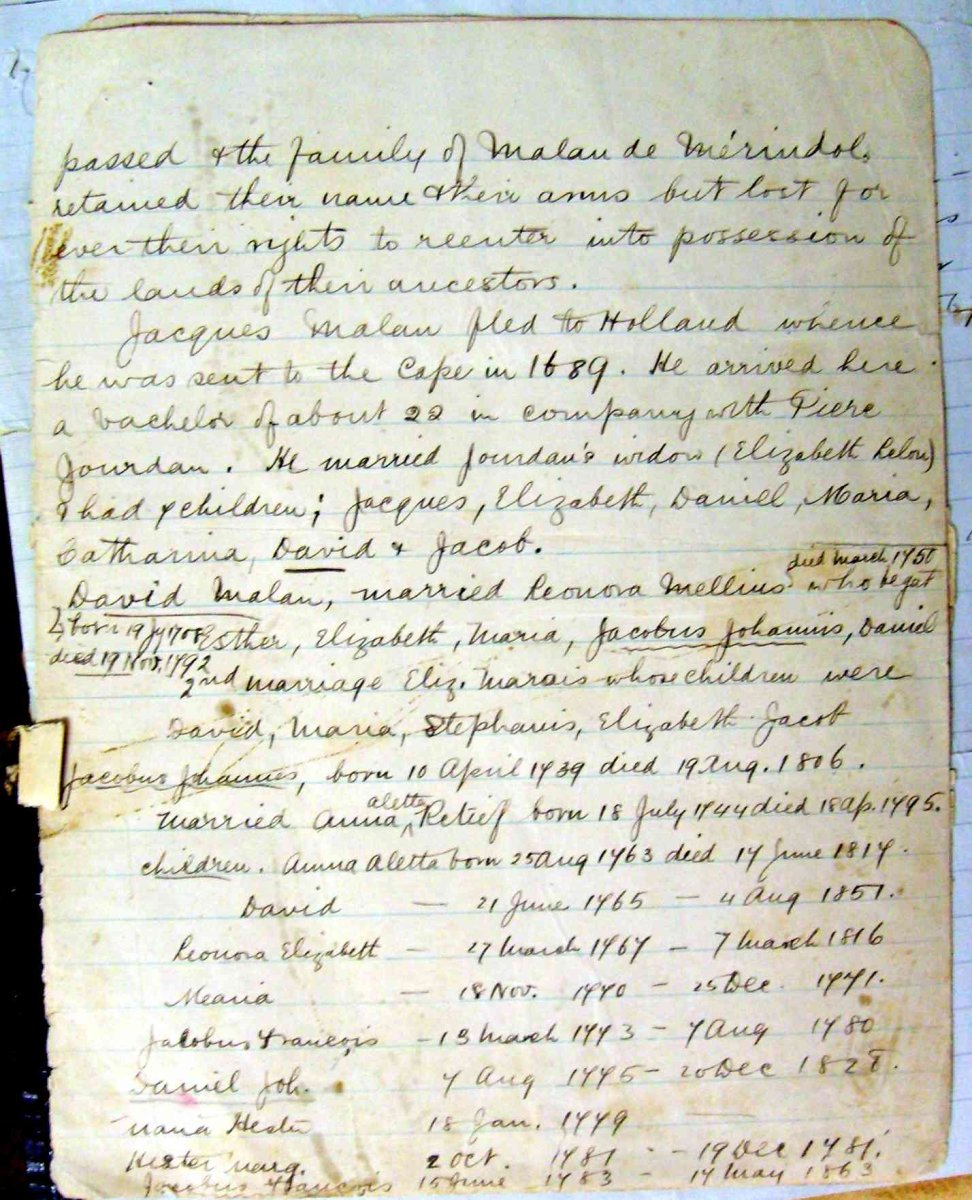 passed & the family of Malan de Mérindol.
retained their name & their arms but lost for
ever their rights to reenter into possession of
the lands of their ancestors.
Jacques Malan fled to Holland whence
he was sent to the Cape in 1689. He arrived here
a bachelor of about 22 in company with Piere
Jourdan. He married Jourdan's widow (Elizabeth Lelon)
& had 7 children; Jacques, Elizabeth, Daniel, Maria,
Catharina, David & Jacob.
died March 1750
David Malan, married Leonora Mellius who begat
born 19 Jy 1708 Esther, Elizabeth, Maria, Jacobus Johannis, Daniel
died 19 Nov. 1792
2nd marriage Eliz. Marais whose children were
David, Maria, Stephanis, Elizabeth Jacob
Jacobus Johannes, born 10 April 1739 died 19 Aug. 1806.
Married Anna aletta Retief born 18 July 1744 died 18 Ap. 1795.
children. Anna Aletta born 25 Aug 1763 died 17 June 1817.
David — 21 June 1765 — 4 Aug 1851.
Leonora Elizabeth — 27 March 1767 — 7 March 1816
Maria — 18 Nov. 1770 — 25 Dec. 1771.
Jacobus Francois — 13 March 1773 — 7 Aug 1780
Daniel Joh. 7 Aug 1775 — 20 Dec 1828.
Maria Hester 18 Jan. 1779 —
Hester Marg. 2 Oct. 1781 — 19 Dec 1781.
Jacobus Francois 15 June 1783 — 17 May 1863